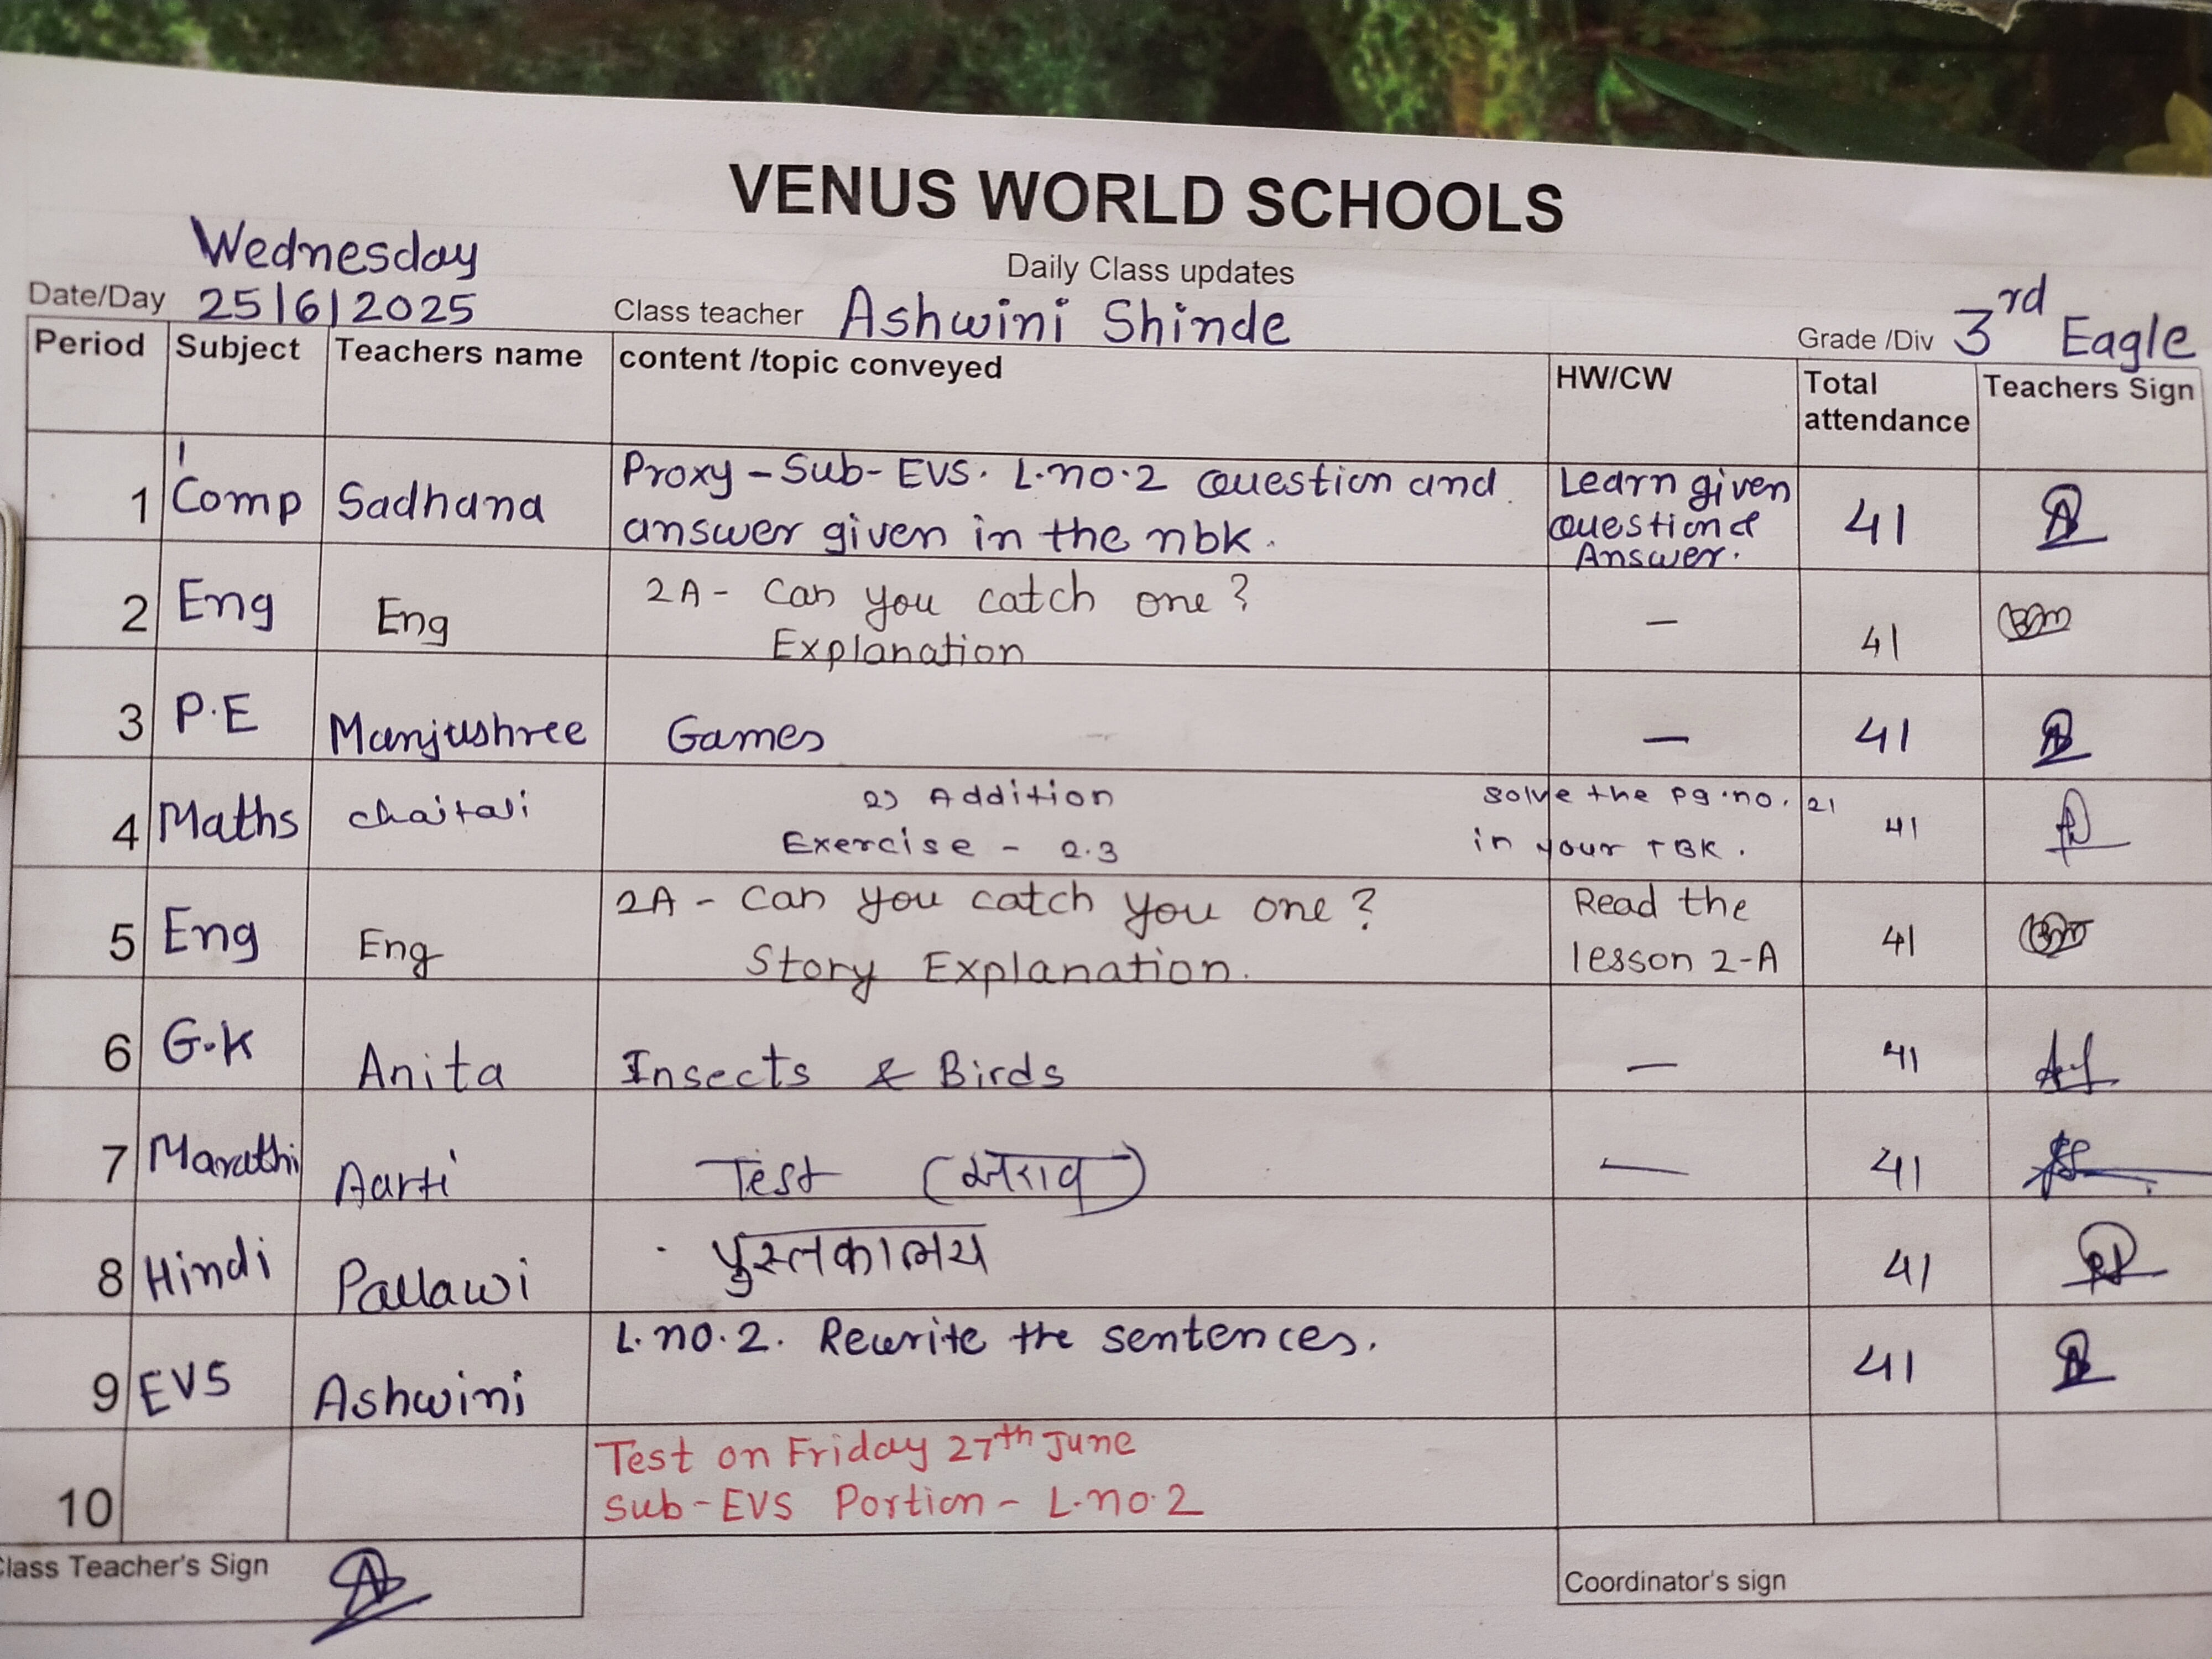 VENUS WORLD SCHOOLS
Daily Class updates
Wednesday
Date/Day 25/6/2025 Class teacher Ashwini Shinde Grade /Div 3rd Eagle
Period Subject Teachers name content /topic conveyed HW/CW Total attendance Teachers Sign
1 Comp Sadhana Proxy - Sub- EVS. L.no.2 Question and Learn given 41
answer given in the nbk. Question & Answer.
2 Eng Eng 2A - Can you catch one? - 41
Explanation
3 P.E Manjushree Games - 41
4 Maths chaitali 2) Addition solve the pg.no. 21 41
Exercise - 2.3 in your TBK.
5 Eng Eng 2A - Can you catch you one? Read the 41
Story Explanation. lesson 2-A
6 G.K Anita Insects & Birds - 41
7 Marathi Aarti Test - 41
8 Hindi Pallawi पुस्तकालय 41
9 EVS Ashwini L.no.2. Rewrite the sentences. 41
10 Test on Friday 27th June
Sub-EVS Portion - L.no.2
Class Teacher's Sign
Coordinator's sign